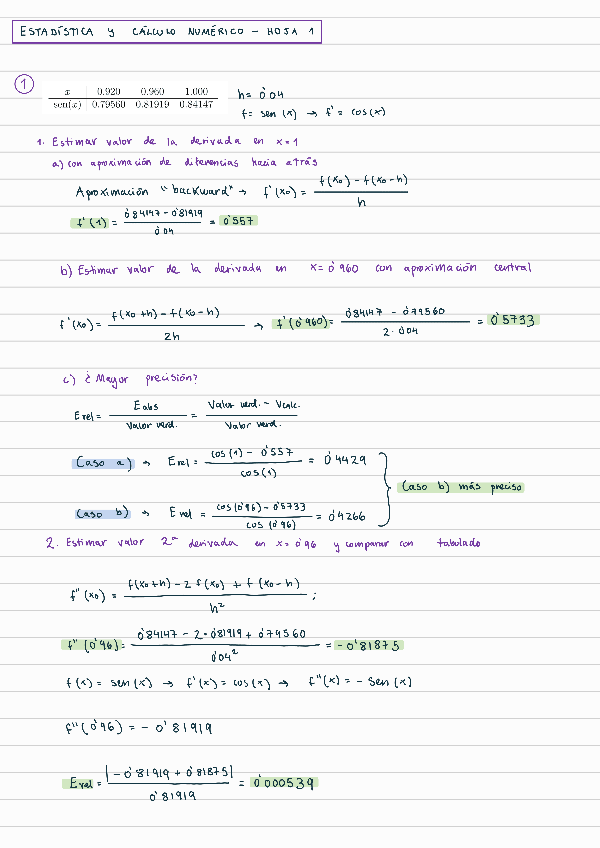 ESTADÍSTICA Y CÁLCULO NUMÉRICO - HOJA 1
1
x 0.920 0.960 1.000
sen(x) 0.79560 0.81919 0.84147
h = 0'04
f = sen (x) → f' = cos(x)
1. Estimar valor de la derivada en x=1
a) con aproximación de diferencias hacia atrás
Aproximación "backward" → f'(x₀) = (f(x₀) - f(x₀-h)) / h
f'(1) = (0'84147 - 0'81919) / 0'04 = 0'557
b) Estimar valor de la derivada en x=0'960 con aproximación central
f'(x₀) = (f(x₀+h) - f(x₀-h)) / 2h → f'(0'960) = (0'84147 - 0'79560) / 2·0'04 = 0'5733
c) ¿Mayor precisión?
Erel = Eabs / Valor verd. = (Valor verd. - Vcalc.) / Valor verd.
Caso a) → Erel = (cos(1) - 0'557) / cos(1) = 0'4429
Caso b) → Erel = (cos(0'96) - 0'5733) / cos (0'96) = 0'4266
Caso b) más preciso
2. Estimar valor 2ª derivada en x=0'96 y comparar con tabulado
f''(x₀) = (f(x₀+h) - 2 f(x₀) + f(x₀-h)) / h² ;
f''(0'96) = (0'84147 - 2·0'81919 + 0'79560) / 0'04² = -0'81875
f(x) = sen(x) → f'(x) = cos(x) → f''(x) = - sen (x)
f''(0'96) = - 0'81919
Erel = |-0'81919 + 0'81875| / 0'81919 = 0'000539